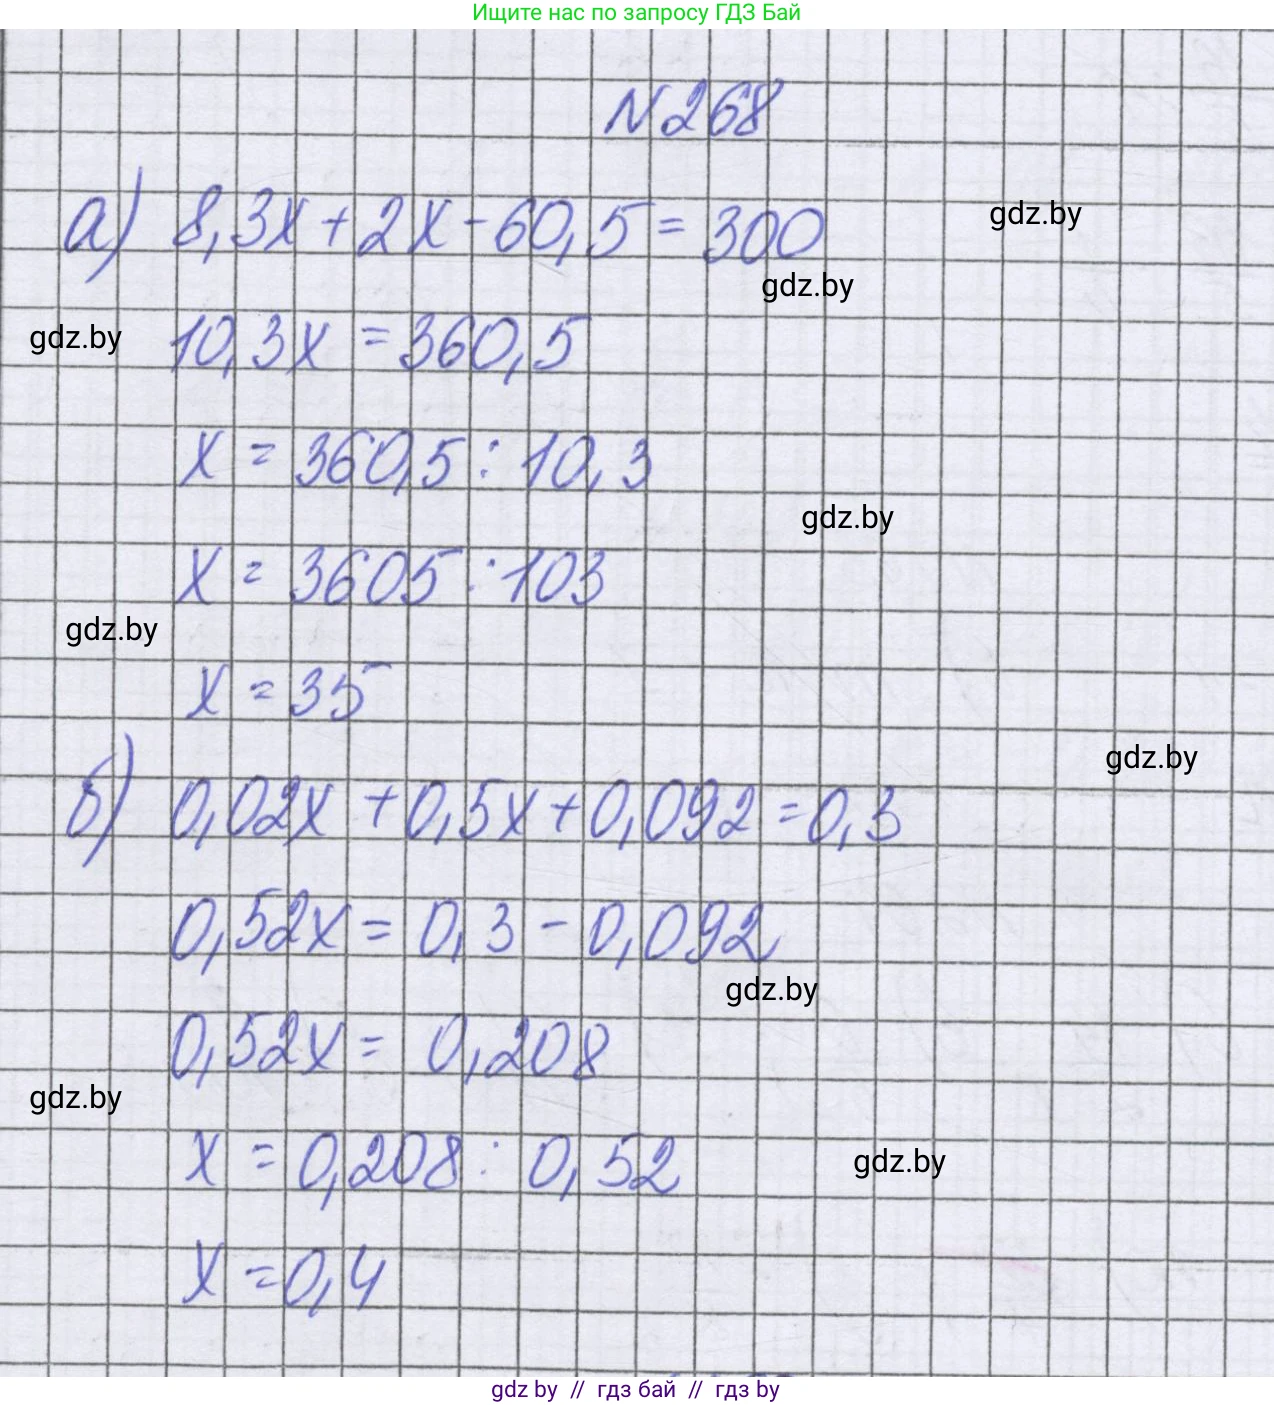 Ищите нас по запросу ГДЗ Бай
N 268
а) 8,3x + 2x - 60,5 = 300
gdz.by
gdz.by
gdz.by
10,3x = 360,5
x = 360,5 : 10,3
gdz.by
x = 3605 : 103
gdz.by
x = 35
gdz.by
б) 0,02x + 0,5x + 0,092 = 0,3
0,52x = 0,3 - 0,092
gdz.by
0,52x = 0,208
gdz.by
x = 0,208 : 0,52
gdz.by
x = 0,4
gdz by // гдз бай // гдз by